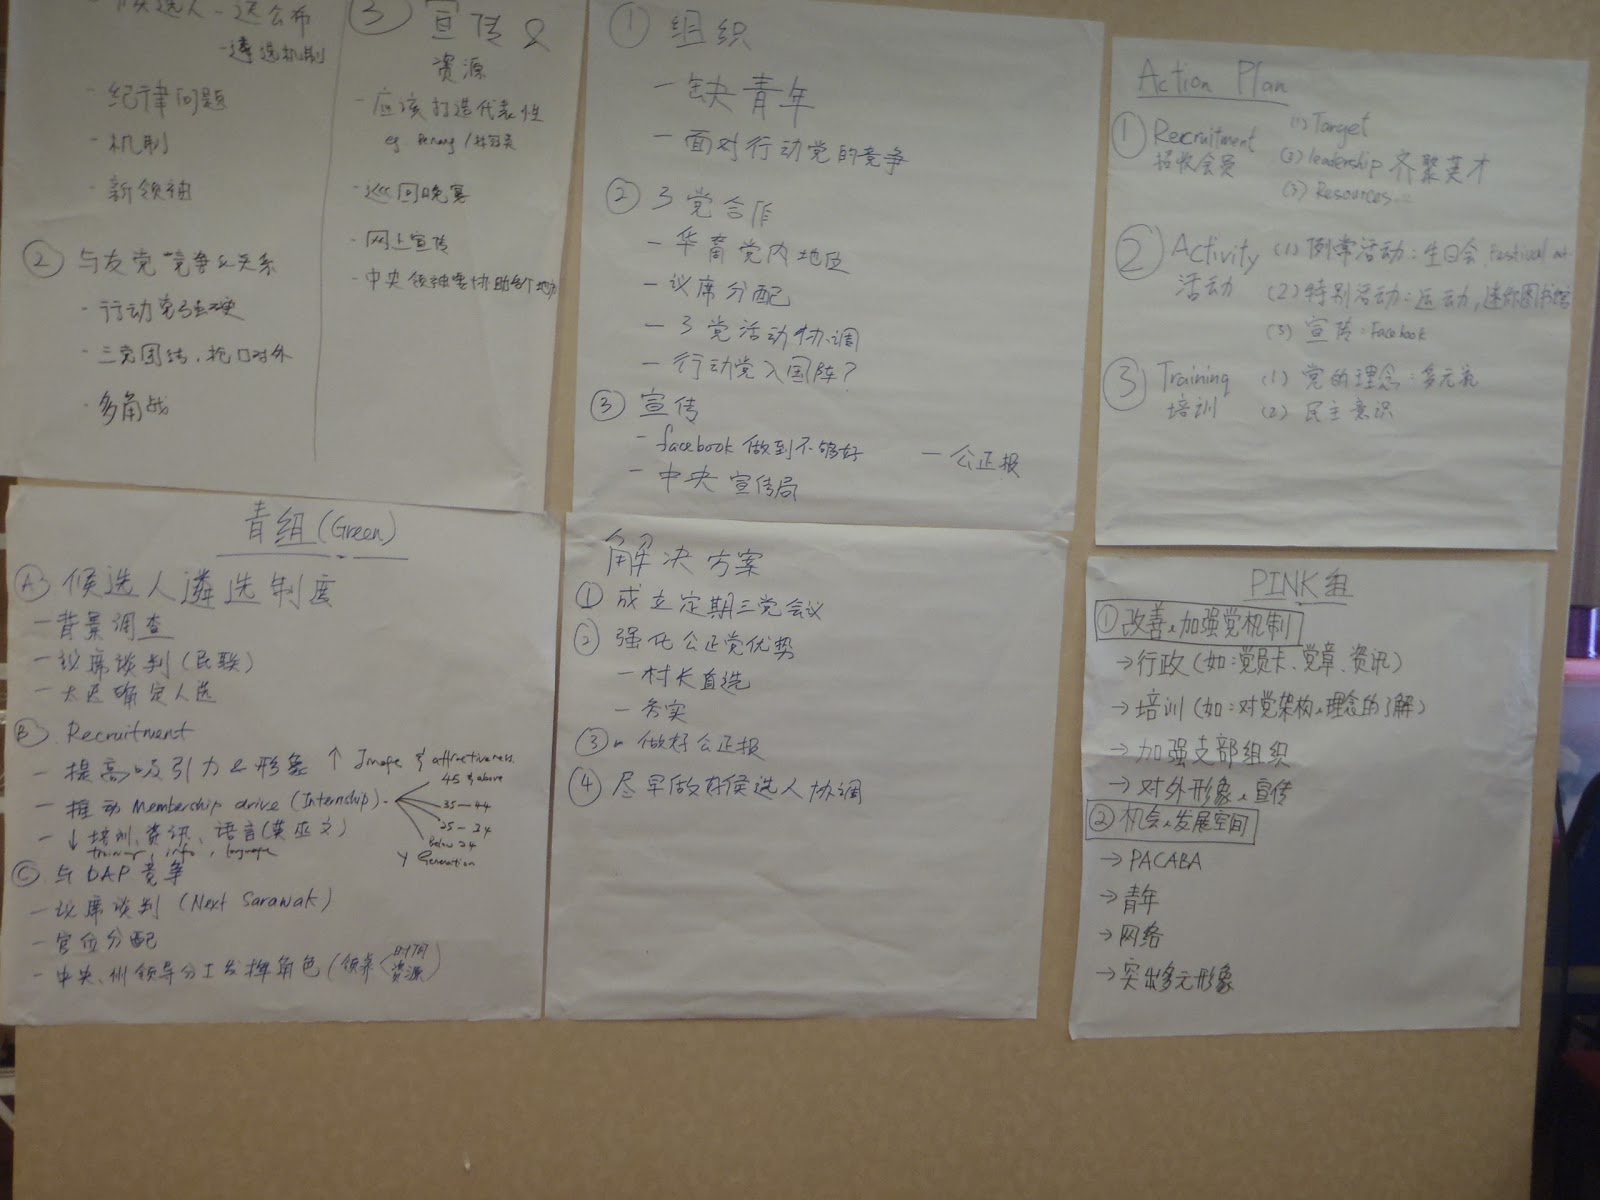 - 候选人 - 迟公布
- 遴选机制
- 纪律问题
- 机制
- 新领袖
② 与友党竞争&关系
- 行动党强硬
- 三党团结，枪口对外
- 多角战
③ 宣传 &
资源
- 应该打造代表性
eg. Penang /
- 巡回晚宴
- 网上宣传
- 中央领袖要协助各个地方
① 组织
- 缺青年
- 面对行动党的竞争
② 3党合作
- 华裔党内地位
- 议席分配
- 3党活动协调
- 行动党入国阵？
③ 宣传
- facebook 做到不够好
- 公正报
- 中央宣传局
Action Plan
① Recruitment
招收会员
(1) Target
(2) leadership 齐聚英才
(3) Resources
② Activity
活动
(1) 例常活动：生日会, Festival
(2) 特别活动：运动, 迷你图书馆
(3) 宣传：Facebook
③ Training
培训
(1) 党的理念：多元化
(2) 民主意识
青组 (Green)
Ⓐ 候选人遴选制度
- 背景调查
- 议席谈判 (民联)
- 太迟确定人选
Ⓑ Recruitment
- 提高吸引力 & 形象 ↑ Image & attractiveness
- 推动 Membership drive (Internship)
45 & above
35-44
25-34
Below 24
Y Generation
- ↓ 培训、资讯、语言 (英巫文)
training, info, language
Ⓒ 与 DAP 竞争
- 议席谈判 (Next Sarawak)
- 官位分配
- 中央、州领导分工发挥角色 (领养 < 时间
资源)
解决方案
① 成立定期三党会议
② 强化公正党优势
- 村长直选
- 务实
③ 做好公正报
④ 尽早做好候选人协调
PINK组
① 改善&加强党机制
→ 行政 (如：党员卡、党章、资讯)
→ 培训 (如：对党架构&理念的了解)
→ 加强支部组织
→ 对外形象&宣传
② 机会&发展空间
→ PACABA
→ 青年
→ 网络
→ 突出多元形象